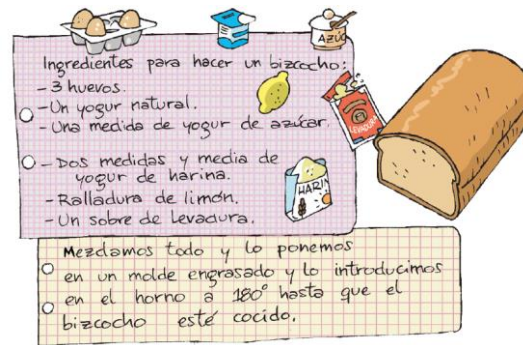 AZÚC
Ingredientes para hacer un bizcocho:
- 3 huevos.
- Un yogur natural.
- Una medida de yogur de azúcar.
- Dos medidas y media de
yogur de harina.
- Ralladura de limón.
- Un sobre de levadura.
LEVADURA
HARIN
Mezclamos todo y lo ponemos
en un molde engrasado y lo introducimos
en el horno a 180° hasta que el
bizcocho esté cocido.